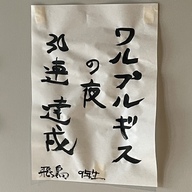 ワルプルギス
の夜
30連達成
飛鳥